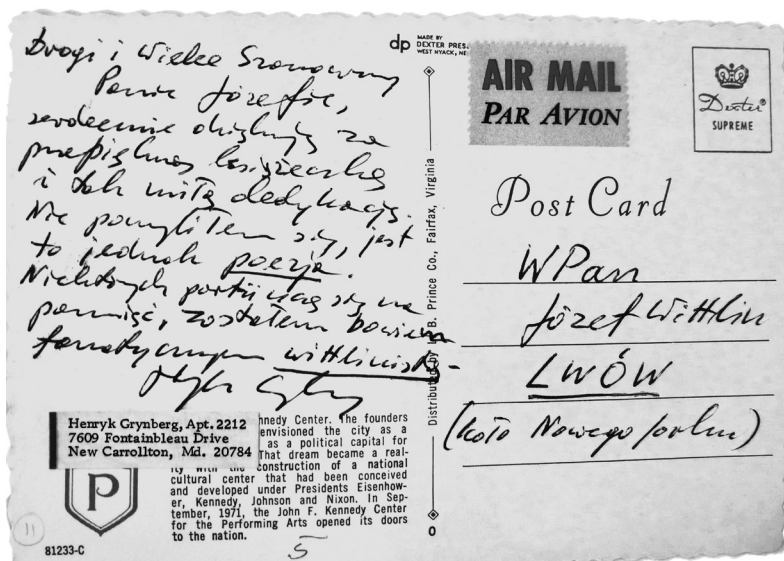 Drogi i Wielce Szanowny
Panie Józefie,
serdecznie dziękuję za
prześliczną książeczkę
i tak miłą dedykację.
Nie pomyliłem się, jest
to jednak poezja.
Niektórych partii uczę się na
pamięć, zostałem bowiem
fanatycznym wittlinistą
dp MADE BY
DEXTER PRESS
WEST NYACK, NE
Henryk Grynberg, Apt. 2212
7609 Fontainbleau Drive
New Carrollton, Md. 20784
nnedy Center. The founders
envisioned the city as a
as a political capital for
That dream became a real-
ity with the construction of a national
cultural center that had been conceived
and developed under Presidents Eisenhow-
er, Kennedy, Johnson and Nixon. In Sep-
tember, 1971, the John F. Kennedy Center
for the Performing Arts opened its doors
to the nation.
P
11
81233-C
5
Distributed by B. Prince Co., Fairfax, Virginia
O
AIR MAIL
PAR AVION
Dexter®
SUPREME
Post Card
WPan
Józef Wittlin
LWÓW
(koło Nowego Jorku)